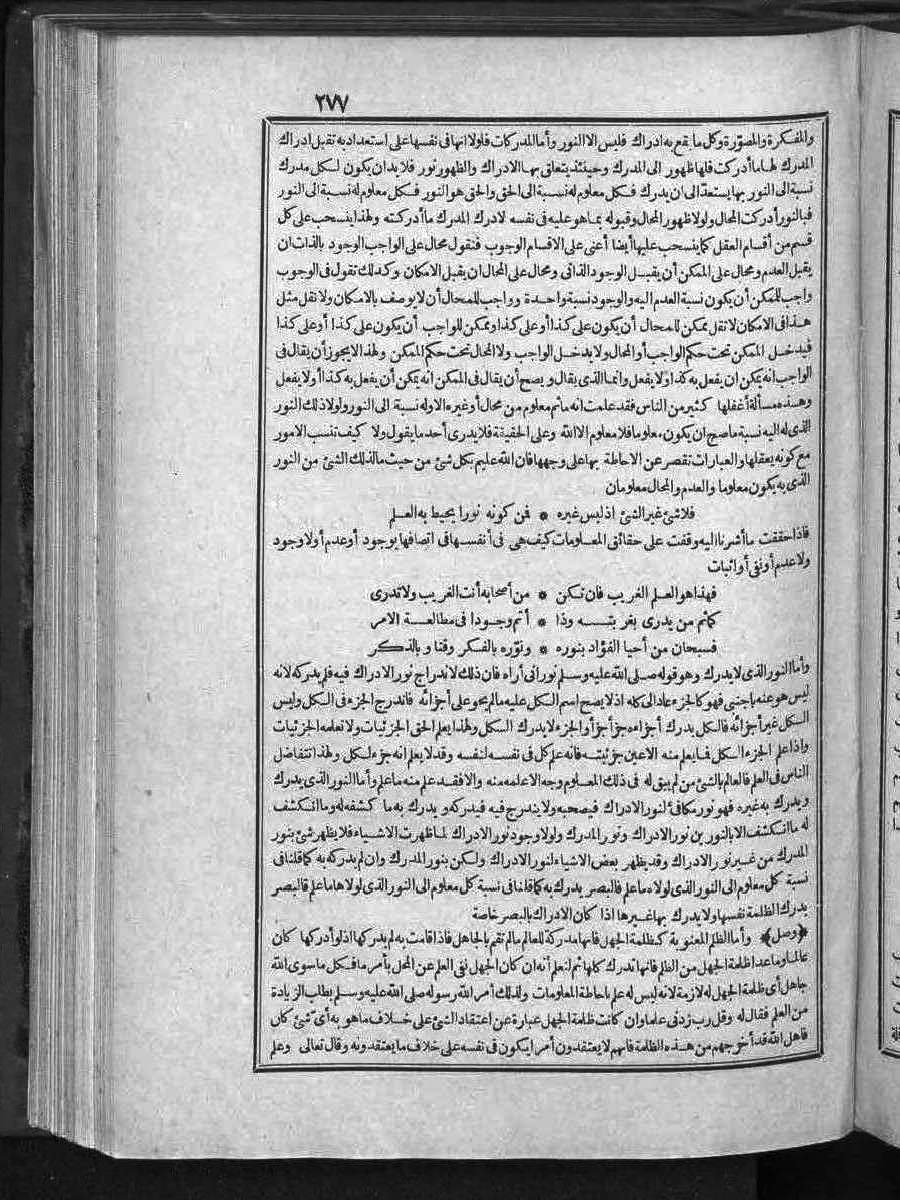 ٢٧٧
والمفكرة والمصوّرة وكل ما يقع به ادراك فليس الا النور وأما المدركات فلولا انها فى نفسها على استعداد به تقبل ادراك
المدرك لها ما أدركت فلها ظهور الى المدرك وحينئذ يتعلق بها الادراك والظهور نور فلا بد ان يكون لكل مدرك
نسبة الى النور بها يستعدّ الى ان يدرك فكل معلوم له نسبة الى الحق والحق هو النور فكل معلوم له نسبة الى النور
فبالنور أدركت المحال ولولا ظهور المحال وقبوله بما هو عليه فى نفسه لادراك المدرك ما أدركته ولهذا ينسحب على كل
قسم من أقسام العقل كما ينسحب عليها أيضا أعنى على الاقسام الوجوب فنقول محال على الواجب الوجود بالذات ان
يقبل العدم ومحال على الممكن أن يقبل الوجود الذاتى ومحال على المحال ان يقبل الامكان وكذلك تقول فى الوجوب
واجب للممكن أن يكون نسبة العدم اليه والوجود نسبة واحدة وواجب للمحال أن لا يوصف بالامكان ولا نقل مثل
هذا فى الامكان لا تقل ممكن للمحال أن يكون على كذا أو على كذا وممكن للواجب أن يكون على كذا أو على كذا
فيدخل الممكن تحت حكم الواجب أو المحال ولا يدخل الواجب ولا المحال تحت حكم الممكن ولهذا لا يجوز أن يقال فى
الواجب انه يمكن ان يفعل به كذا ولا يفعل وانما الذى يقال ويصح أن يقال فى الممكن انه يمكن أن يفعل به كذا أو لا يفعل
وهذه مسألة أغفلها كثير من الناس فقد علمت انه ما ثم معلوم من محال أو غيره الا وله نسبة الى النور ولولا ذلك النور
الذى له اليه نسبة ما صح ان يكون معلوما فلا معلوم الا الله وعلى الحقيقة فلا يدرى أحد ما يقول ولا كيف تنسب الامور
مع كونه يعقلها والعبارات تقصر عن الاحاطة بها على وجهها فان الله عليم بكل شئ من حيث ما لذلك الشئ من النور
الذى به يكون معلوما والعدم والمحال معلومان
فلا شئ غير الشئ اذ ليس غيره * فمن كونه نورا يحيط به العلم
فاذا حققت ما أشرنا اليه وقفت على حقائق المعلومات كيف هى فى أنفسها فى اتصافها بوجود أو عدم أو لا وجود
ولا عدم أو نفى أو اثبات
فهذا هو العلم الغريب فان تكن * من أصحابه أنت الغريب ولا تدرى
كما ثم من يدرى بغربته وذا * أتم وجودا فى مطالعة الامر
فسبحان من أحيا الفؤاد بنوره * ونوّره بالفكر وقتا وبالذكر
وأما النور الذى لا يدرك وهو قوله صلى الله عليه وسلم نورانى أراه فان ذلك لاندراج نور الادراك فيه فلم يدركه لانه
ليس هو عنه باجنبى فهو كالجزء عاد الى كله اذ لا يصح اسم الكل عليه ما لم يحو على أجزائه فاندرج الجزء فى الكل وليس
الكل غير أجزائه فالكل يدرك أجزاءه جزأ جزأ والجزء لا يدرك الكل ولهذا يعلم الحق الجزئيات ولا تعلمه الجزئيات
واذا علم الجزء الكل فما يعلم منه الا عين جزئيته فانه علم كل فى نفسه لنفسه وقد لا يعلم انه جزء لكل ولهذا تتفاضل
الناس فى العلم فالعالم بالشئ من لم يبق له فى ذلك المعلوم وجه الا علمه منه والا فقد علم منه ما علم وأما النور الذى يدرك
ويدرك به غيره فهو نور مكافئ لنور الادراك فيصحبه ولا يندرج فيه فيدركه ويدرك به ما كشفه له وما انكشف
له ما انكشف الا بالنورين نور الادراك ونور المدرك ولولا وجود نور الادراك لما ظهرت الاشياء فلا يظهر شئ بنور
المدرك من غير نور الادراك وقد يظهر بعض الاشياء لنور الادراك ولكن بنور المدرك وان لم يدركه به كما قلنا فى
نسبة كل معلوم الى النور الذى لولاه ما علم فالبصر يدرك به كما قلنا فى نسبة كل معلوم الى النور الذى لولاها ما علم فالبصر
يدرك الظلمة نفسها ولا يدرك بها غيرها اذا كان الادراك بالبصر خاصة
﴿وصل﴾ وأما الظلم المعنوية كظلمة الجهل فانها مدركة للعالم ما لم تقم بالجاهل فاذا قامت به لم يدركها اذ لو أدركها كان
عالما وما عدا ظلمة الجهل من الظلم فانها تدرك كلها ثم لتعلم أنه ان كان الجهل نفى العلم عن المحل بأمر ما فكل ما سوى الله
جاهل أى ظلمة الجهل له لازمة لانه ليس له علم باحاطة المعلومات ولذلك أمر الله رسوله صلى الله عليه وسلم بطلب الزيادة
من العلم فقال له وقل رب زدنى علما وان كانت ظلمة الجهل عبارة عن اعتقاد الشئ على خلاف ما هو به أىّ شئ كان
فاهل الله قد أخرجهم من هذه الظلمة فانهم لا يعتقدون أمرا يكون فى نفسه على خلاف ما يعتقدونه وقال تعالى وعلم